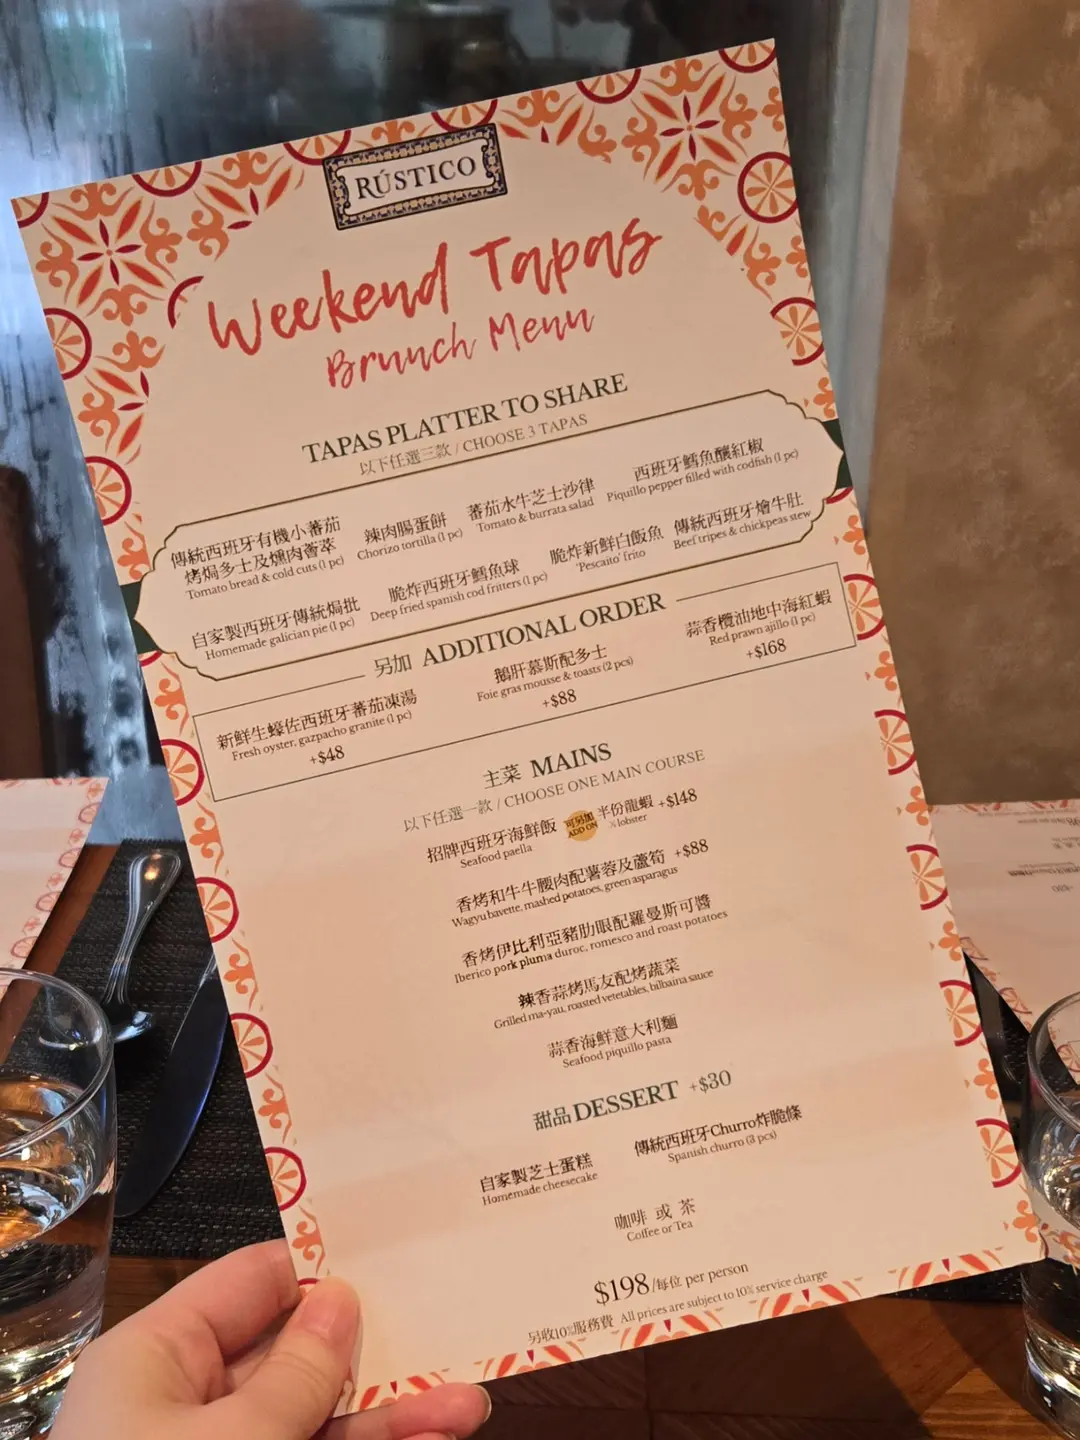 RÚSTICO
Weekend Tapas
Brunch Menu
TAPAS PLATTER TO SHARE
以下任選三款 / CHOOSE 3 TAPAS
傳統西班牙有機小蕃茄
烤焗多士及燻肉薈萃
Tomato bread & cold cuts (1 pc)
辣肉腸蛋餅
Chorizo tortilla (1 pc)
蕃茄水牛芝士沙律
Tomato & burrata salad
西班牙鱈魚釀紅椒
Piquillo pepper filled with codfish (1 pc)
自家製西班牙傳統焗批
Homemade galician pie (1 pc)
脆炸西班牙鱈魚球
Deep fried spanish cod fritters (1 pc)
脆炸新鮮白飯魚
'Pescaito' frito
傳統西班牙燴牛肚
Beef tripes & chickpeas stew
另加 ADDITIONAL ORDER
新鮮生蠔佐西班牙蕃茄凍湯
Fresh oyster, gazpacho granite (1 pc)
+$48
鵝肝慕斯配多士
Foie gras mousse & toasts (2 pcs)
+$88
蒜香欖油地中海紅蝦
Red prawn ajillo (1 pc)
+$168
主菜 MAINS
以下任選一款 / CHOOSE ONE MAIN COURSE
招牌西班牙海鮮飯 可另加 半份龍蝦 +$148
Seafood paella ADD ON ½ lobster
香烤和牛牛腰肉配薯蓉及蘆筍 +$88
Wagyu bavette, mashed potatoes, green asparagus
香烤伊比利亞豬肋眼配羅曼斯可醬
Iberico pork pluma duroc, romesco and roast potatoes
辣香蒜烤馬友配烤蔬菜
Grilled ma-yau, roasted vetetables, bilbaina sauce
蒜香海鮮意大利麵
Seafood piquillo pasta
甜品 DESSERT +$30
自家製芝士蛋糕
Homemade cheesecake
傳統西班牙Churro炸脆條
Spanish churro (3 pcs)
咖啡 或 茶
Coffee or Tea
$198 /每位 per person
另收10%服務費 All prices are subject to 10% service charge